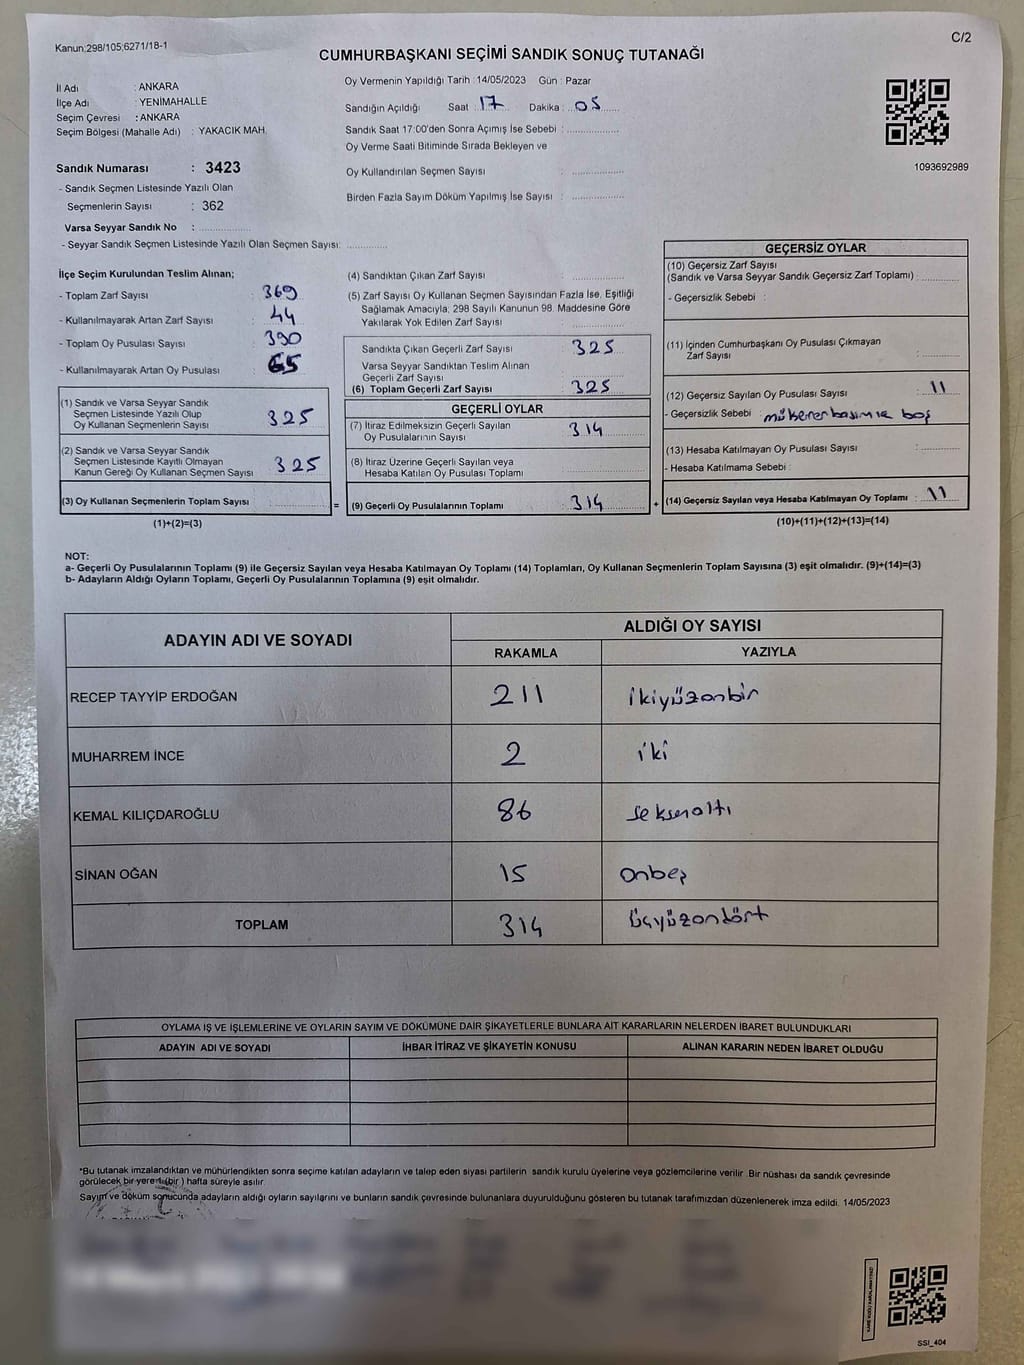 Kanun:298/105;6271/18-1
C/2
CUMHURBAŞKANI SEÇİMİ SANDIK SONUÇ TUTANAĞI
İl Adı : ANKARA
İlçe Adı : YENİMAHALLE
Seçim Çevresi : ANKARA
Seçim Bölgesi (Mahalle Adı) : YAKACIK MAH.
Sandık Numarası : 3423
- Sandık Seçmen Listesinde Yazılı Olan
Seçmenlerin Sayısı : 362
Varsa Seyyar Sandık No :
- Seyyar Sandık Seçmen Listesinde Yazılı Olan Seçmen Sayısı:
Oy Vermenin Yapıldığı Tarih : 14/05/2023 Gün : Pazar
Sandığın Açıldığı Saat : 17 Dakika : 05
Sandık Saat 17:00'den Sonra Açımış İse Sebebi :
Oy Verme Saati Bitiminde Sırada Bekleyen ve
Oy Kullandırılan Seçmen Sayısı :
Birden Fazla Sayım Döküm Yapılmış İse Sayısı :
1093692989
İlçe Seçim Kurulundan Teslim Alınan;
- Toplam Zarf Sayısı : 369
- Kullanılmayarak Artan Zarf Sayısı : 44
- Toplam Oy Pusulası Sayısı : 390
- Kullanılmayarak Artan Oy Pusulası : 65
(1) Sandık ve Varsa Seyyar Sandık
Seçmen Listesinde Yazılı Olup
Oy Kullanan Seçmenlerin Sayısı : 325
(2) Sandık ve Varsa Seyyar Sandık
Seçmen Listesinde Kayıtlı Olmayan
Kanun Gereği Oy Kullanan Seçmen Sayısı : 325
(3) Oy Kullanan Seçmenlerin Toplam Sayısı :
(1)+(2)=(3)
(4) Sandıktan Çıkan Zarf Sayısı :
(5) Zarf Sayısı Oy Kullanan Seçmen Sayısından Fazla İse, Eşitliği
Sağlamak Amacıyla; 298 Sayılı Kanunun 98. Maddesine Göre
Yakılarak Yok Edilen Zarf Sayısı :
Sandıkta Çıkan Geçerli Zarf Sayısı : 325
Varsa Seyyar Sandıktan Teslim Alınan
Geçerli Zarf Sayısı :
(6) Toplam Geçerli Zarf Sayısı : 325
GEÇERLİ OYLAR
(7) İtiraz Edilmeksizin Geçerli Sayılan
Oy Pusulalarının Sayısı : 314
(8) İtiraz Üzerine Geçerli Sayılan veya
Hesaba Katılan Oy Pusulası Toplamı :
= (9) Geçerli Oy Pusulalarının Toplamı : 314 +
GEÇERSİZ OYLAR
(10) Geçersiz Zarf Sayısı
(Sandık ve Varsa Seyyar Sandık Geçersiz Zarf Toplamı) :
- Geçersizlik Sebebi :
(11) İçinden Cumhurbaşkanı Oy Pusulası Çıkmayan
Zarf Sayısı :
(12) Geçersiz Sayılan Oy Pusulası Sayısı : 11
- Geçersizlik Sebebi : boş
(13) Hesaba Katılmayan Oy Pusulası Sayısı :
- Hesaba Katılmama Sebebi :
(14) Geçersiz Sayılan veya Hesaba Katılmayan Oy Toplamı : 11
(10)+(11)+(12)+(13)=(14)
NOT:
a- Geçerli Oy Pusulalarının Toplamı (9) ile Geçersiz Sayılan veya Hesaba Katılmayan Oy Toplamı (14) Toplamları, Oy Kullanan Seçmenlerin Toplam Sayısına (3) eşit olmalıdır. (9)+(14)=(3)
b- Adayların Aldığı Oyların Toplamı, Geçerli Oy Pusulalarının Toplamına (9) eşit olmalıdır.
ADAYIN ADI VE SOYADI ALDIĞI OY SAYISI
RAKAMLA YAZIYLA
RECEP TAYYİP ERDOĞAN 211 ikiyüzonbir
MUHARREM İNCE 2 iki
KEMAL KILIÇDAROĞLU 86 seksenaltı
SİNAN OĞAN 15 onbeş
TOPLAM 314 üçyüzondört
OYLAMA İŞ VE İŞLEMLERİNE VE OYLARIN SAYIM VE DÖKÜMÜNE DAİR ŞİKAYETLERLE BUNLARA AİT KARARLARIN NELERDEN İBARET BULUNDUKLARI
ADAYIN ADI VE SOYADI İHBAR İTİRAZ VE ŞİKAYETİN KONUSU ALINAN KARARIN NEDEN İBARET OLDUĞU
*Bu tutanak imzalandıktan ve mühürlendikten sonra seçime katılan adayların ve talep eden siyasi partilerin sandık kurulu üyelerine veya gözlemcilerine verilir. Bir nüshası da sandık çevresinde
görülecek bir yere 1 (bir ) hafta süreyle asılır.
Sayım ve döküm sonucunda adayların aldığı oyların sayılarını ve bunların sandık çevresinde bulunanlara duyurulduğunu gösteren bu tutanak tarafımızdan düzenlenerek imza edildi. 14/05/2023
SSİ_404